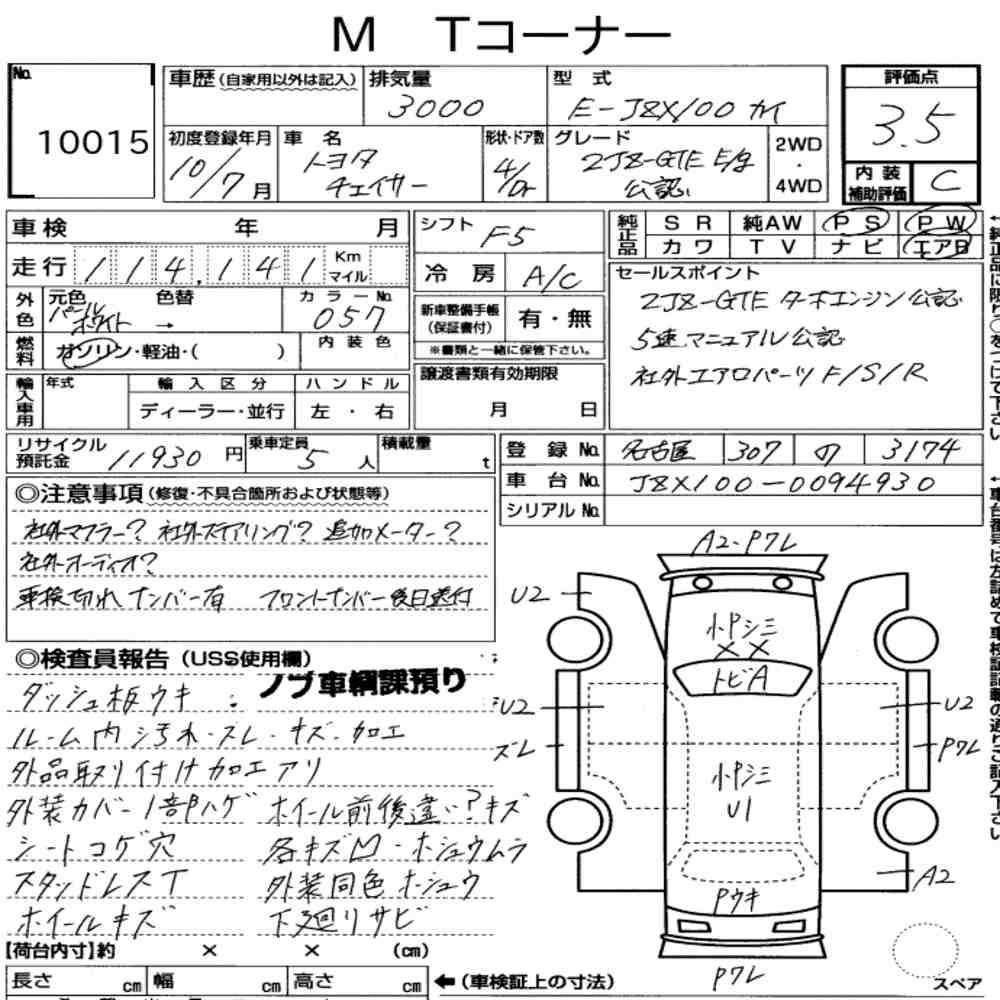 M Tコーナー
No. 10015
車歴(自家用以外は記入) 排気量 3000 型式 E-JZX100 カイ 評価点 3.5
初度登録年月 10/7月 車名 トヨタ チェイサー 形状・ドア数 4/Dr グレード 2JZ-GTE E/g 公認 2WD・4WD
内装補助評価 C
車検 年 月
シフト F5
純正品 SR 純AW PS PW
カワ TV ナビ エアB
走行 114,141 Km マイル
冷房 A/C
セールスポイント
2JZ-GTE ターボエンジン公認
5速マニュアル公認
社外エアロパーツ F/S/R
外色 元色 パールホワイト → 色替 カラーNo. 057
新車整備手帳(保証書付) 有・無
※書類と一緒に保管下さい。
燃料 ガソリン・軽油・( ) 内装色
譲渡書類有効期限 月 日
輸入車用 年式 輸入区分 ハンドル
ディーラー・並行 左・右
リサイクル預託金 11930円 乗車定員 5人 積載量 t
登録No. 名古屋 307 の 3174
車台No. JZX100-0094930
シリアルNo.
◎注意事項(修復・不具合箇所および状態等)
社外マフラー? 社外ステアリング? 追加メーター?
社外オーディオ?
車検切れ ナンバー有 フロントナンバー後日送付
◎検査員報告(USS使用欄)
ノブ車綱課預り
ダッシュ板ウキ
ルーム内汚れ・スレ・キズ・加工
外品取り付け加工アリ
外装カバー1部Pハゲ ホイール前後違い?キズ
シートコゲ穴 各キズ凹・ホシュウムラ
スタンドレスT 外装同色ホシュウ
ホイールキズ 下廻りサビ
【荷台内寸】約 × × (cm)
長さ cm 幅 cm 高さ cm
←(車検証上の寸法)
A2・Pワレ
U2
小Pシミ
××
トビA
U2
U2
スレ
Pワレ
小Pシミ
U1
A2
Pウキ
Pワレ
スペア
←純正品に限り○をつけて下さい
←車台番号は左詰めで車検証記載の通りご記入下さい